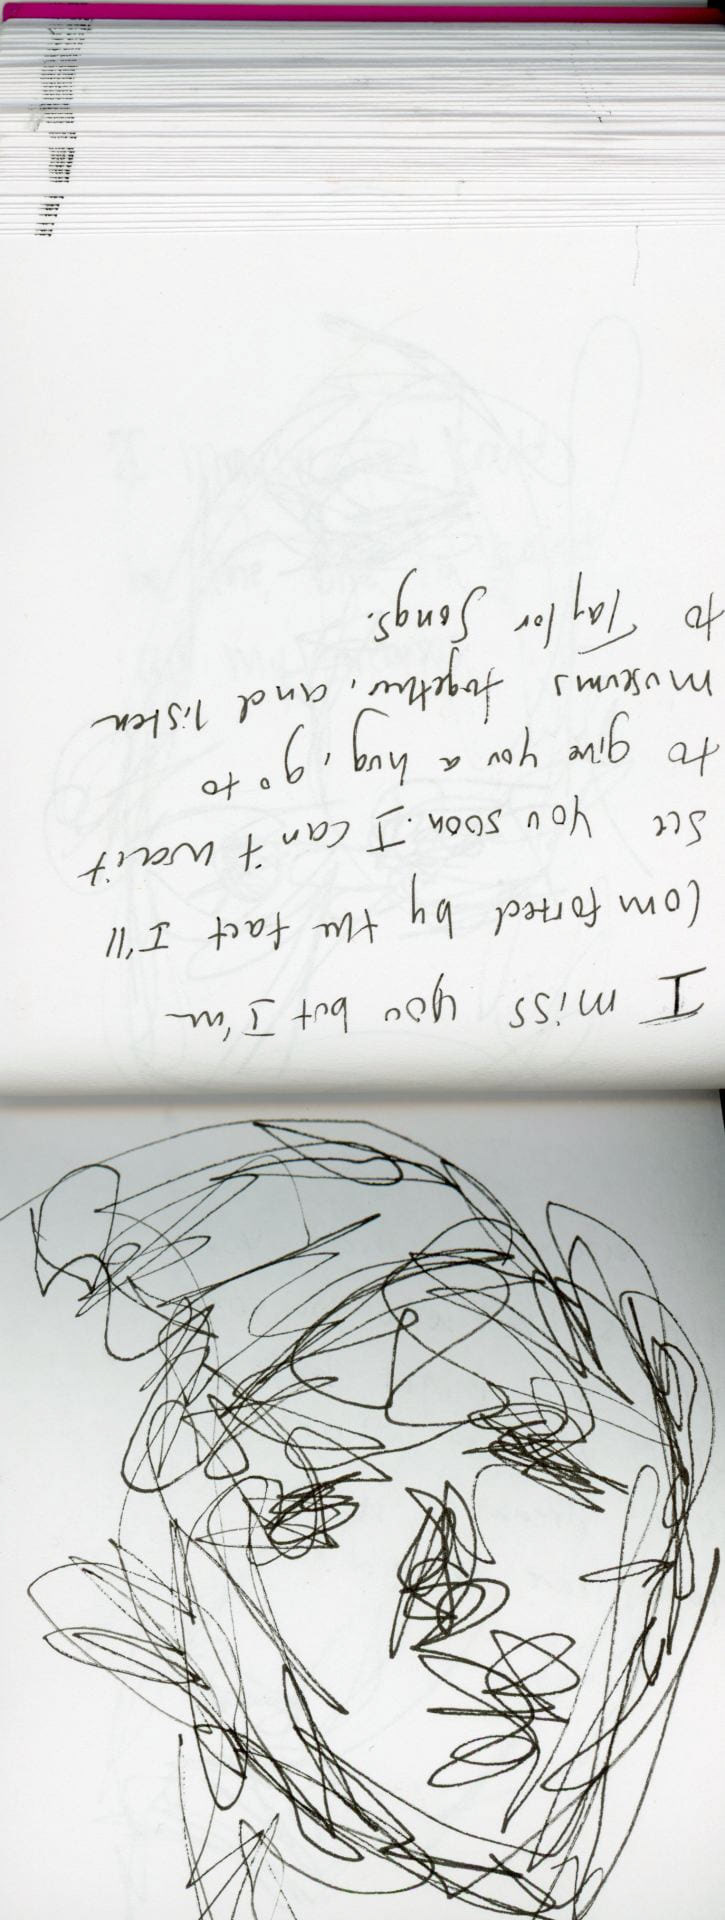 I miss you but I'm
comforted by the fact I'll
see you soon. I can't wait
to give you a hug, go to
museums together, and listen
to Taylor Songs.